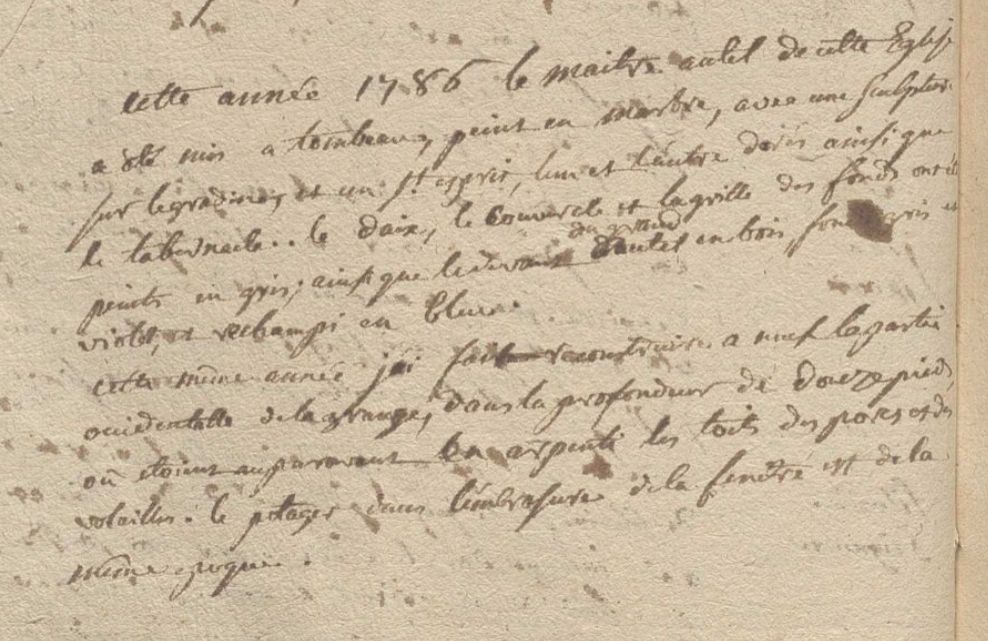 cette année 1786 le maitre autel de cette Eglise
a été mis a tombeau, peint en marbre, avec une sculpture
sur le gradin, et un St esprit, lun et l'autre dorés ainsi que
le tabernacle.. le daix, le couvercle et la grille des fonds ont été
peints en gris; ainsi que le devant d'autel en bois, fond gris et
du grand
violet, et rechampi en bleu.
cette même année j'ai fait reconstruire a neuf la partie
occidentalle de la grange, dans la profondeur de douze pieds,
où etoient auparavant en arpenti les toits des porcs et des
volailles. le potager dans l'embrasure de la fenêtre est de la
même epoque.